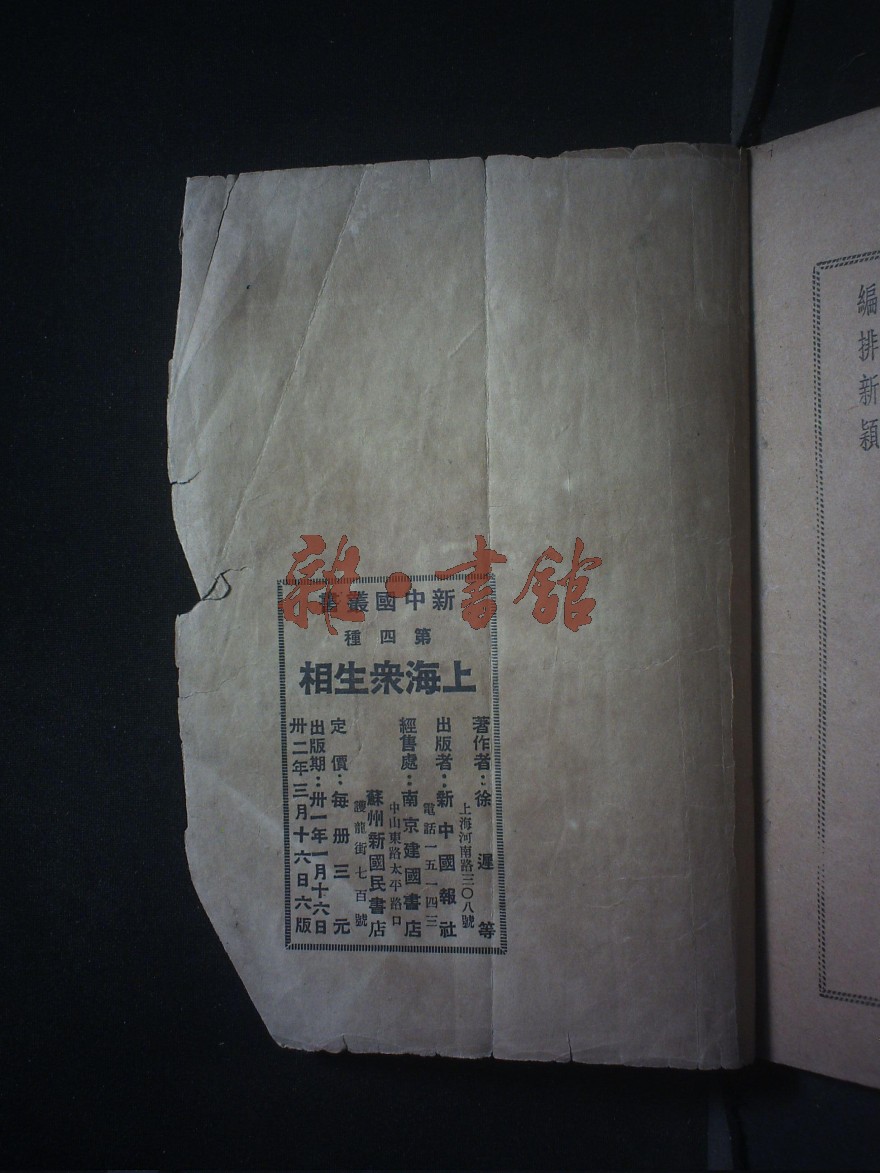 雜·書館
新中國叢書
第四種
上海眾生相
著作者：徐遲等
上海河南路三〇八號
出版者：新中國報社
電話一五一四三
經售處：南京建國書店
中山東路太平路口
蘇州新國民書店
護龍街七百號
定價：每册三元
出版期：卅一年一月十六日
卅二年三月十六日六版
編排新穎